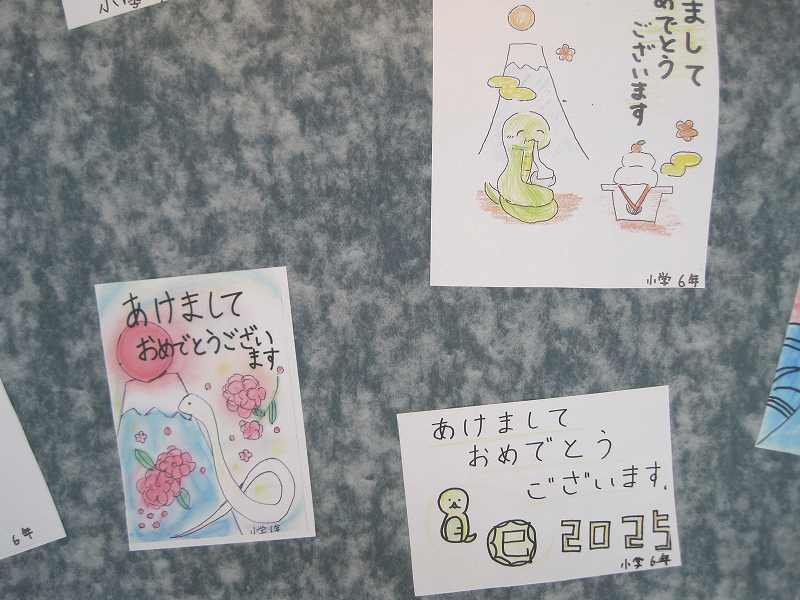 小学
まして
めでとう
ございます
小学 6年
あけまして
おめでとうござい
ます
小学1年
あけまして
おめでとう
ございます.
巳 2025
小学 6年
6年